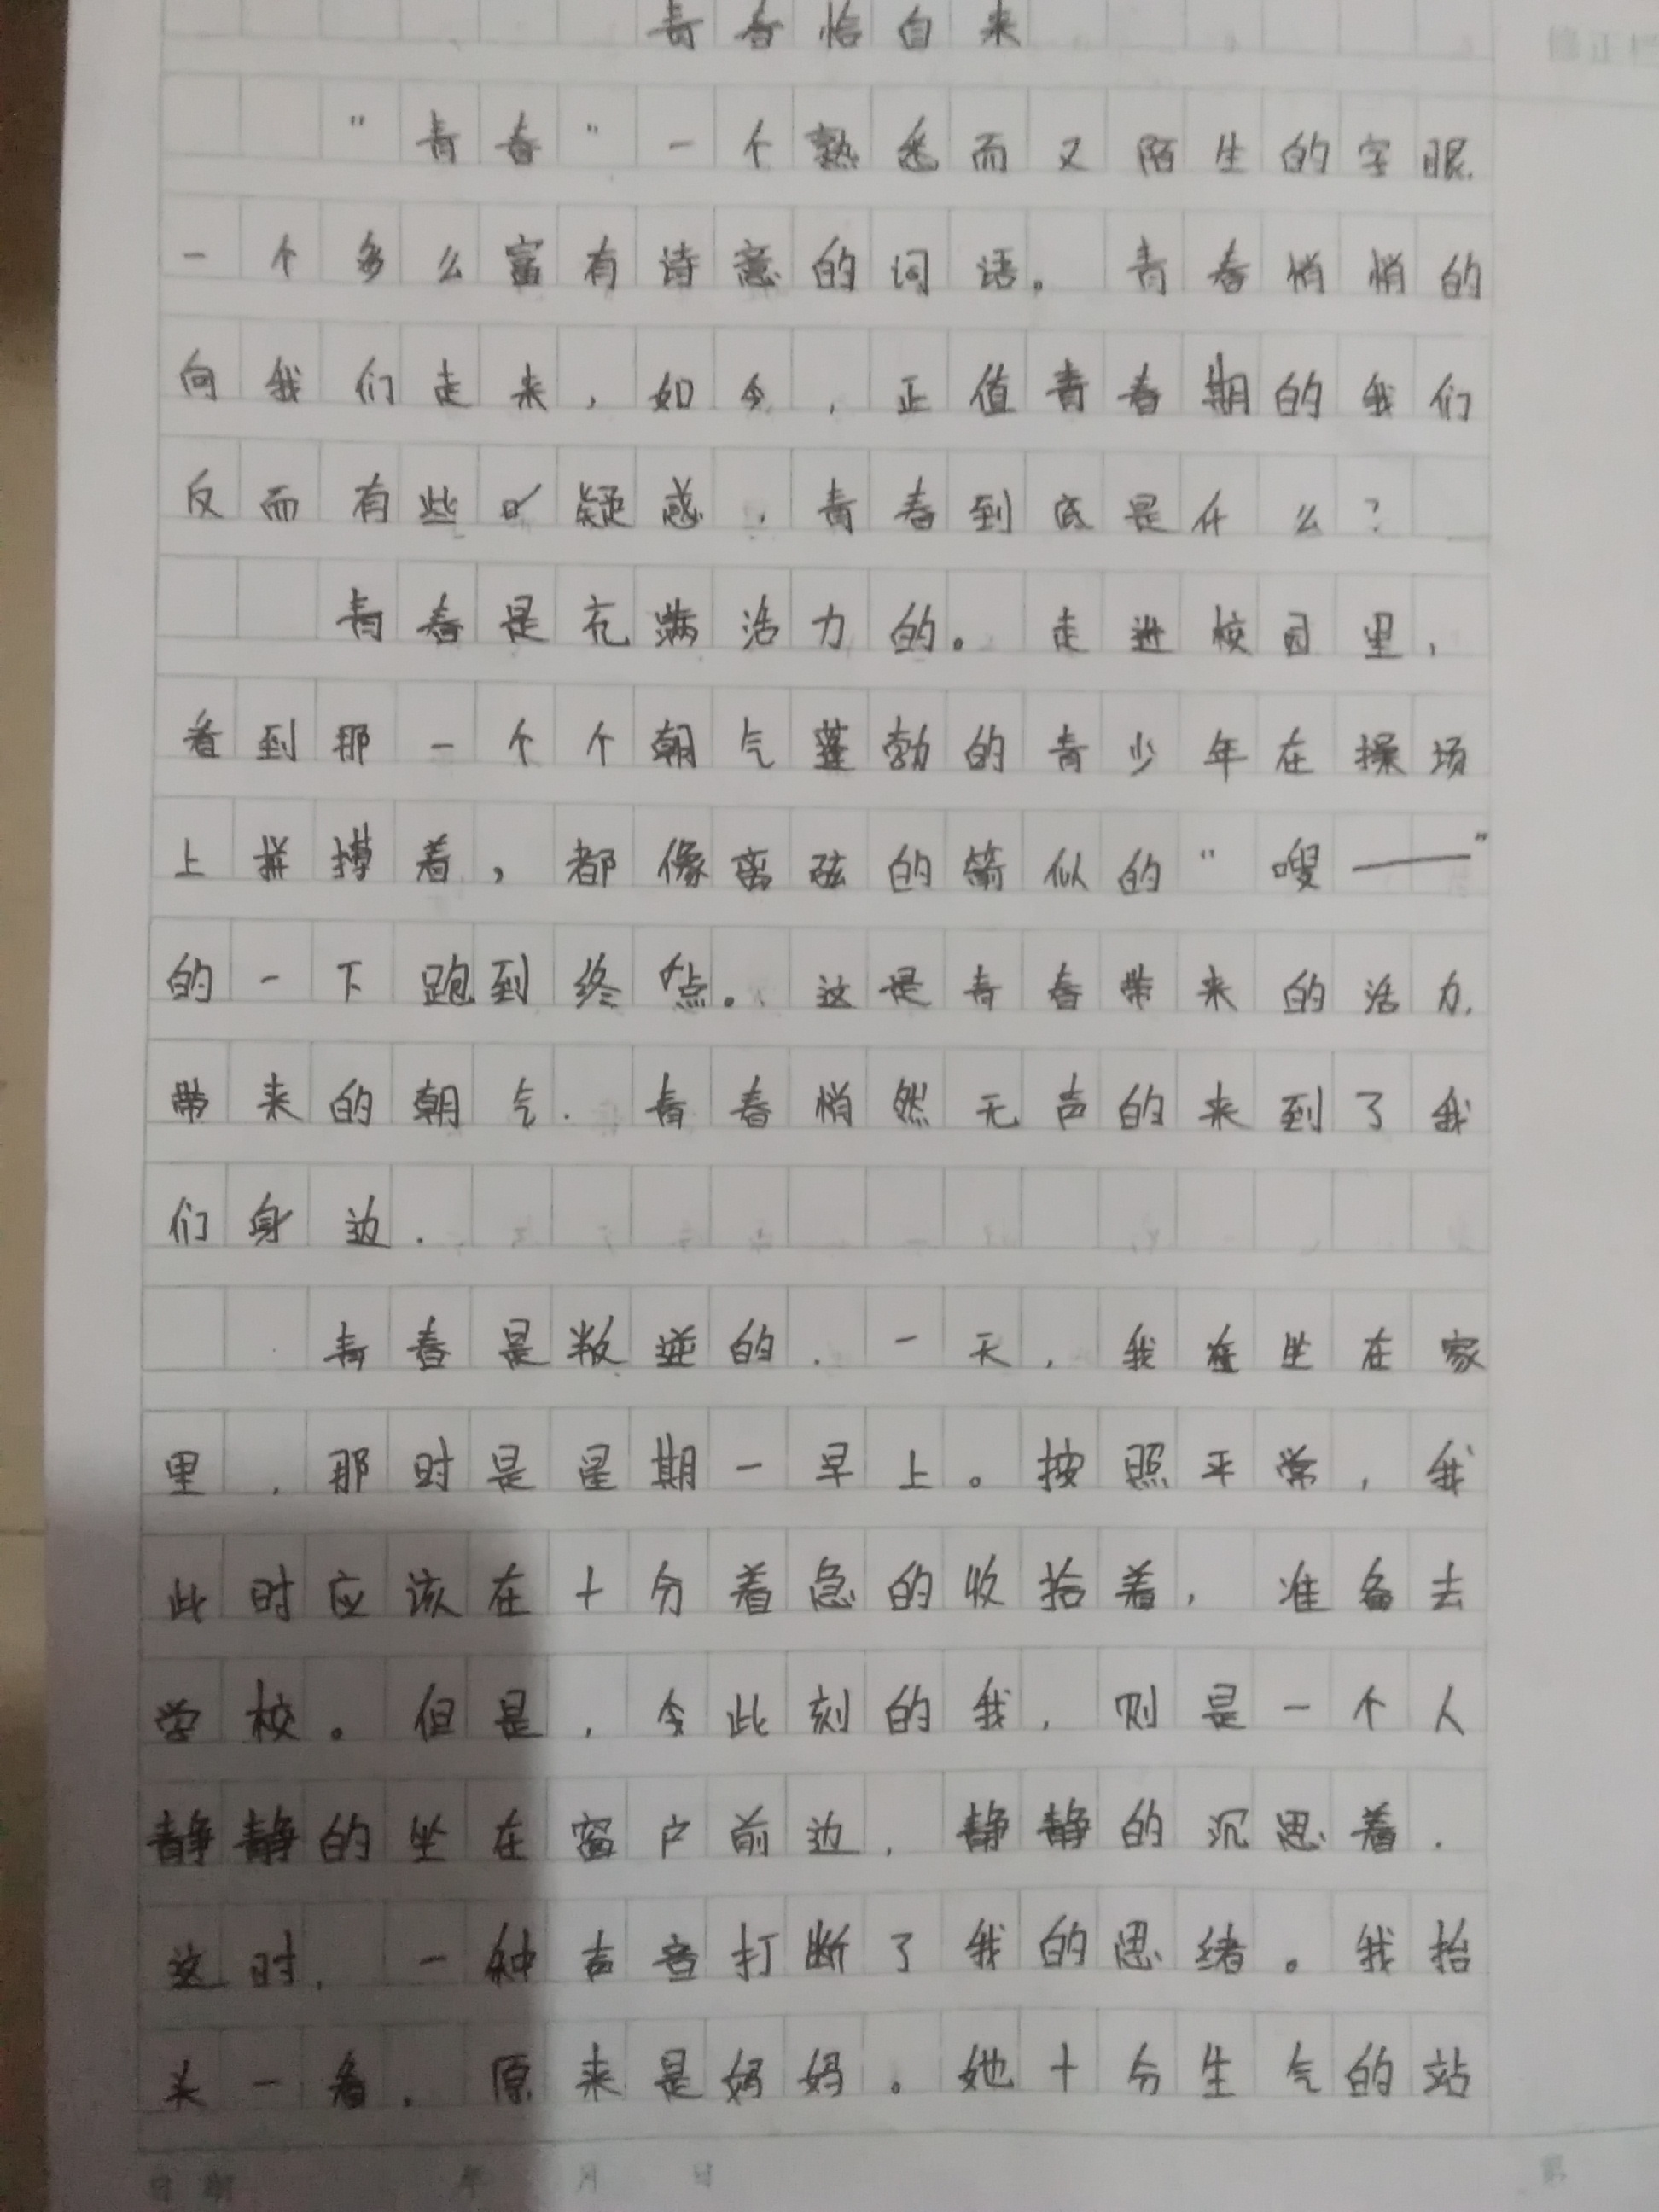 青春恰自来
“青春”一个熟悉而又陌生的字眼，
一个多么富有诗意的词语。青春悄悄的
向我们走来，如今，正值青春期的我们
反而有些疑惑，青春到底是什么？
青春是充满活力的。走进校园里，
看到那一个个朝气蓬勃的青少年在操场
上拼搏着，都像离弦的箭似的“嗖——”
的一下跑到终点。这是青春带来的活力，
带来的朝气．青春悄然无声的来到了我
们身边．
青春是叛逆的．一天，我在坐在家
里，那时是星期一早上。按照平常，我
此时应该在十分着急的收拾着，准备去
学校。但是，今此刻的我，则是一个人
静静的坐在窗户前边，静静的沉思着．
这时，一种声音打断了我的思绪。我抬
头一看，原来是妈妈。她十分生气的站
日期 年 月 日
第